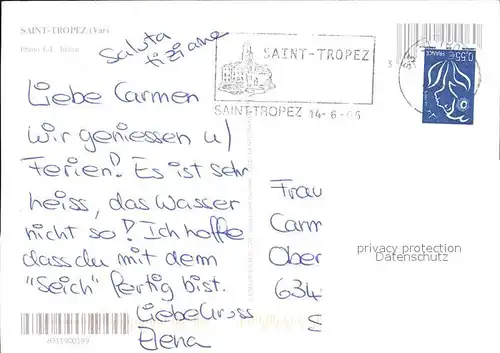 SAINT-TROPEZ (Var)
Saluta
tiziana
SAINT-TROPEZ
SAINT-TROPEZ 14-6-05
0,55€ FRANCE
3
Liebe Carmen
wir geniessen u/
Ferien! Es ist sehr
heiss, das Wasser
nicht so! Ich hoffe
dass du mit dem
"Seich" fertig bist.
Liebe Gruss
Elena
Frau
Carm
Ober
634
S
privacy protection
Datenschutz
8311900199